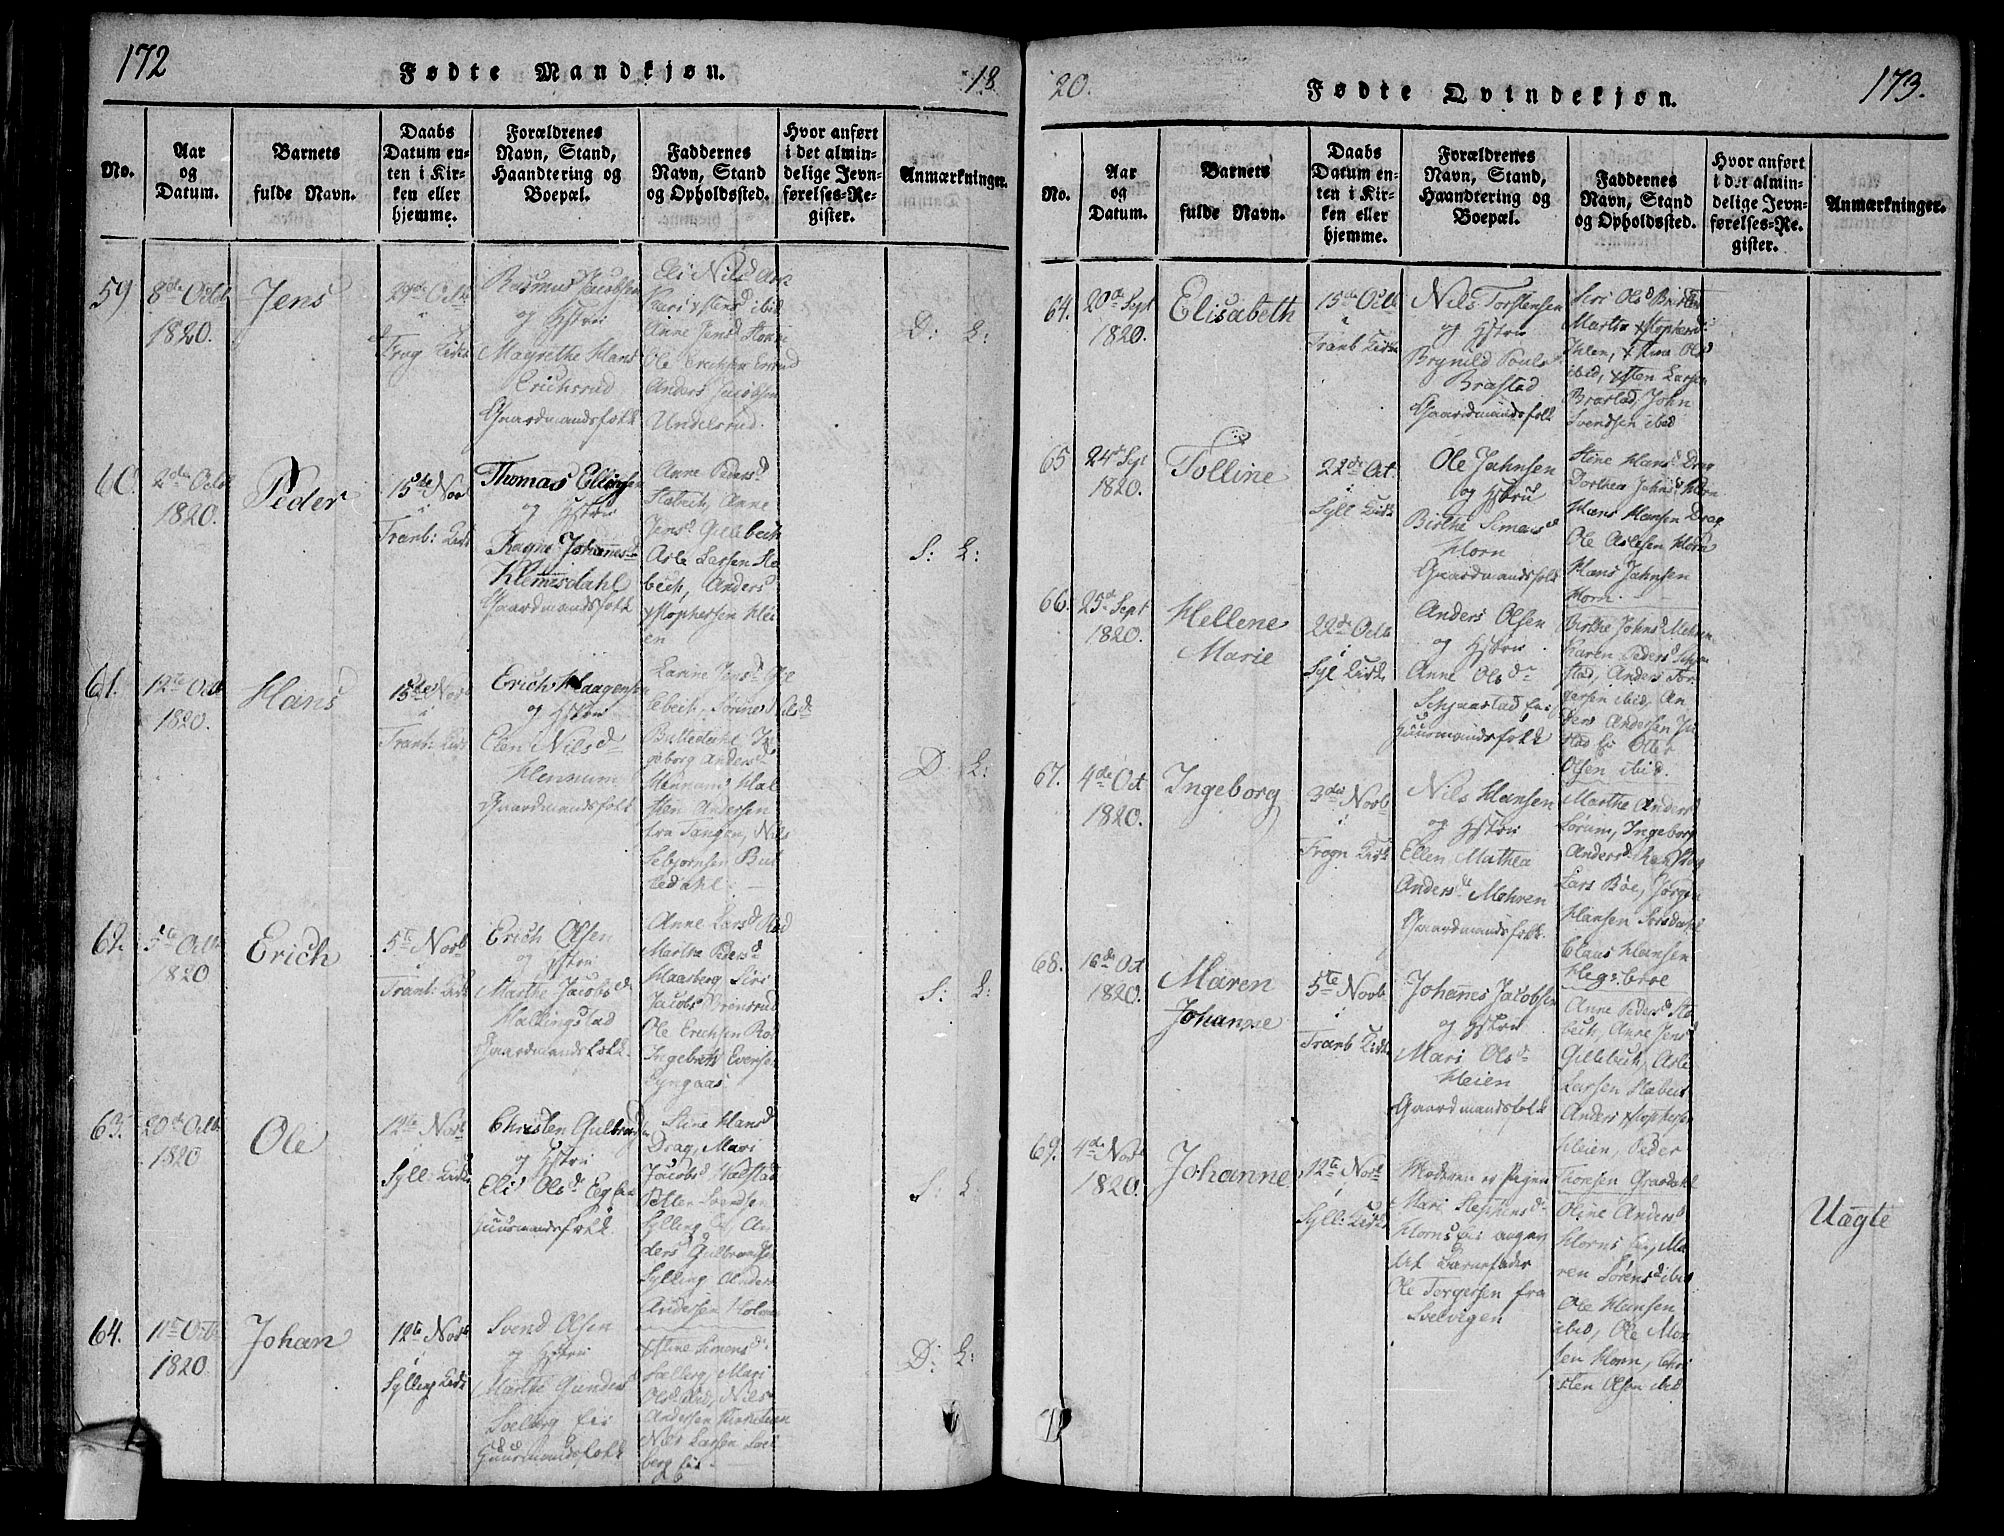 172
Fødte Mandkjøn.
18
No.
Aar
og
Datum.
Barnets
fulde Navn.
Daabs
Datum en-
ten i Kir-
ken eller
hjemme.
Forældrenes
Navn, Stand,
Haandtering og
Boepæl.
Faddernes
Navn, Stand
og Opholdssted.
Hvor anført
i det almin-
delige Jevn-
førelses-Re-
gister.
Anmærkninger.
59
8de Octb
1820.
Jens
29de Octb
i
Frog Kirke
Rasmus Jacobsen
og Hstru
Magrethe Hans
Erichsrud
Gaardmandsfolk
Eli Nilsd
ibid
Anne Jensd
Ole Erichsen
Anders Jacobsen
Undelsrud.
D: L:
60.
2den Octb
1820.
Peder
15de Nov
i
Tranb: Kirk
Thomas Ellingsen
og Hstru
Ragne Johannesd
Klemmsdahl
Gaardmandsfolk
Anne Pedersd
Anne
Jensd Gillebech
Asle Larsen Sta
bech, Anders
Xstophersen Hei
en
S: L:
61.
12te Oct
1820.
Hans
15de Nov
i
Tranb: Kirk
Erich Haagensen
og Hstru
Elen Nilsd
Hennum
Gaardmandsfolk
Karine Jensd Gil
lebech, Sørine Nilsd
Bulledahl, In
geborg Andersd
Hennum, Hal
sten Andersen
fra Tangen, Nils
Sebjørnsen Bul
ledahl.
D: L:
62.
5te Octb
1820
Erich
5te Novb
i
Tranb: Kirk
Erich Olsen
og Hstru
Marthe Jacobsd
Hallingstad
Gaardmandsfolk.
Anne Larsd Rød
Marthe Pedersd
Haasberg, Siri
Jacobsd
Ole Erichsen Rød
Ingebret Eversen
Lyngaas
S: L:
63.
20de Octb
1820
Ole
12te Novb
i
Syll: Kirke
Christen Gulbrandsen
og Hstru
Eli Olsd
Huusmandsfolk.
Stine Hansd
Drag, Mari
Jacobsd
Svendsen
Sylling, An
ders Gulbrandsen
Sylling, Anders
Andersen Holmen
S: L
64.
11te Octb
1820
Johan
12te Novb
i
Sylling Kirk
Svend Olsen
og Hstru
Marthe Gundersd
Solberg Eie
Huusmandsfolk
Stine Simensd
Solberg, Mari
Olsd ibid, Nils
Andersen
Nils Larsen Sol
berg Eie.
D: L:
20.
Fødte Qvindekjøn.
173.
No.
Aar
og
Datum.
Barnets
fulde Navn.
Daabs
Datum en-
ten i Kir-
ken eller
hjemme.
Forældrenes
Navn, Stand,
Haandtering og
Boepæl.
Faddernes
Navn, Stand
og Opholdssted.
Hvor anført
i det almin-
delige Jevn-
førelses-Re-
gister.
Anmærkninger.
64.
20de Sept
1820.
Elisabeth
15de Octb
i
Tranb Kirke
Nils Torstensen
og Hstru
Brynild Pouls
Brastad
Gaardmandsfolk
Siri Olsd
Marthe Xstophersd
Ihlen, Olsd
ibid, Xsten Larsen
Brastad, John
Svendsen ibid
65
24de Sept
1820.
Tolline
22de Oct
i
Syll Kirk
Ole Jahnsen
og Hstru
Birthe Simensd
Horn
Gaardmandsfolk
Stine Hansd Drag
Dorthea Jahnsd Horn
Hans Hansen Drag
Ole Aslesen Horn
Hans Jahnsen
Horn.
66.
25de Sept
1820.
Hellene
Marie
22de Octb
i
Syl Kirk
Anders Olsen
og Hstru
Anne Olsd
Schjærstad Eie
Huusmandsfolk
Birthe Johnsd Mehren
Karen Pedersd
stad, Anders Tor
gersen ibid, An
ders Andersen Ju
stad Eie, Ole
Olsen ibid.
67.
4de Oct
1820.
Ingeborg
3de Novb
i
Frogn Kirk
Nils Hansen
og Hstru
Ellen Mathea
Andersd Mehren
Gaardmandsfolk.
Marthe Andersd
Sørum, Ingeborg
Andersd
Lars Bøe, Jørgen
Hansen
Claus Hansen
68.
16de Oct
1820.
Maren
Johanne
5te Novb
i
Tranb Kirke
Johannes Jacobsen
og Hstru
Mari Olsd
Heien
Gaardmandsfolk
Anne Pedersd Sta
bech, Anne Jensd
Gillebech, Asle
Larsen Stabech
Anders Xstophersen
Heien, Peder
Thomsen Graadahl
69.
4de Novb
1820.
Johanne
12te Novb
i
Syll: Kirke
Moderen er Pigen
Mari Steffensd
Horns Eie angav
til Barnefader
Ole Torgersen fra
Svelvigen
Oline Andersd
Horns Eie, Ma
ren Sørensd ibid
Ole Hansen
ibid, Ole Mon
sen Horn, Chri
sten Olsen ibid
Uægte